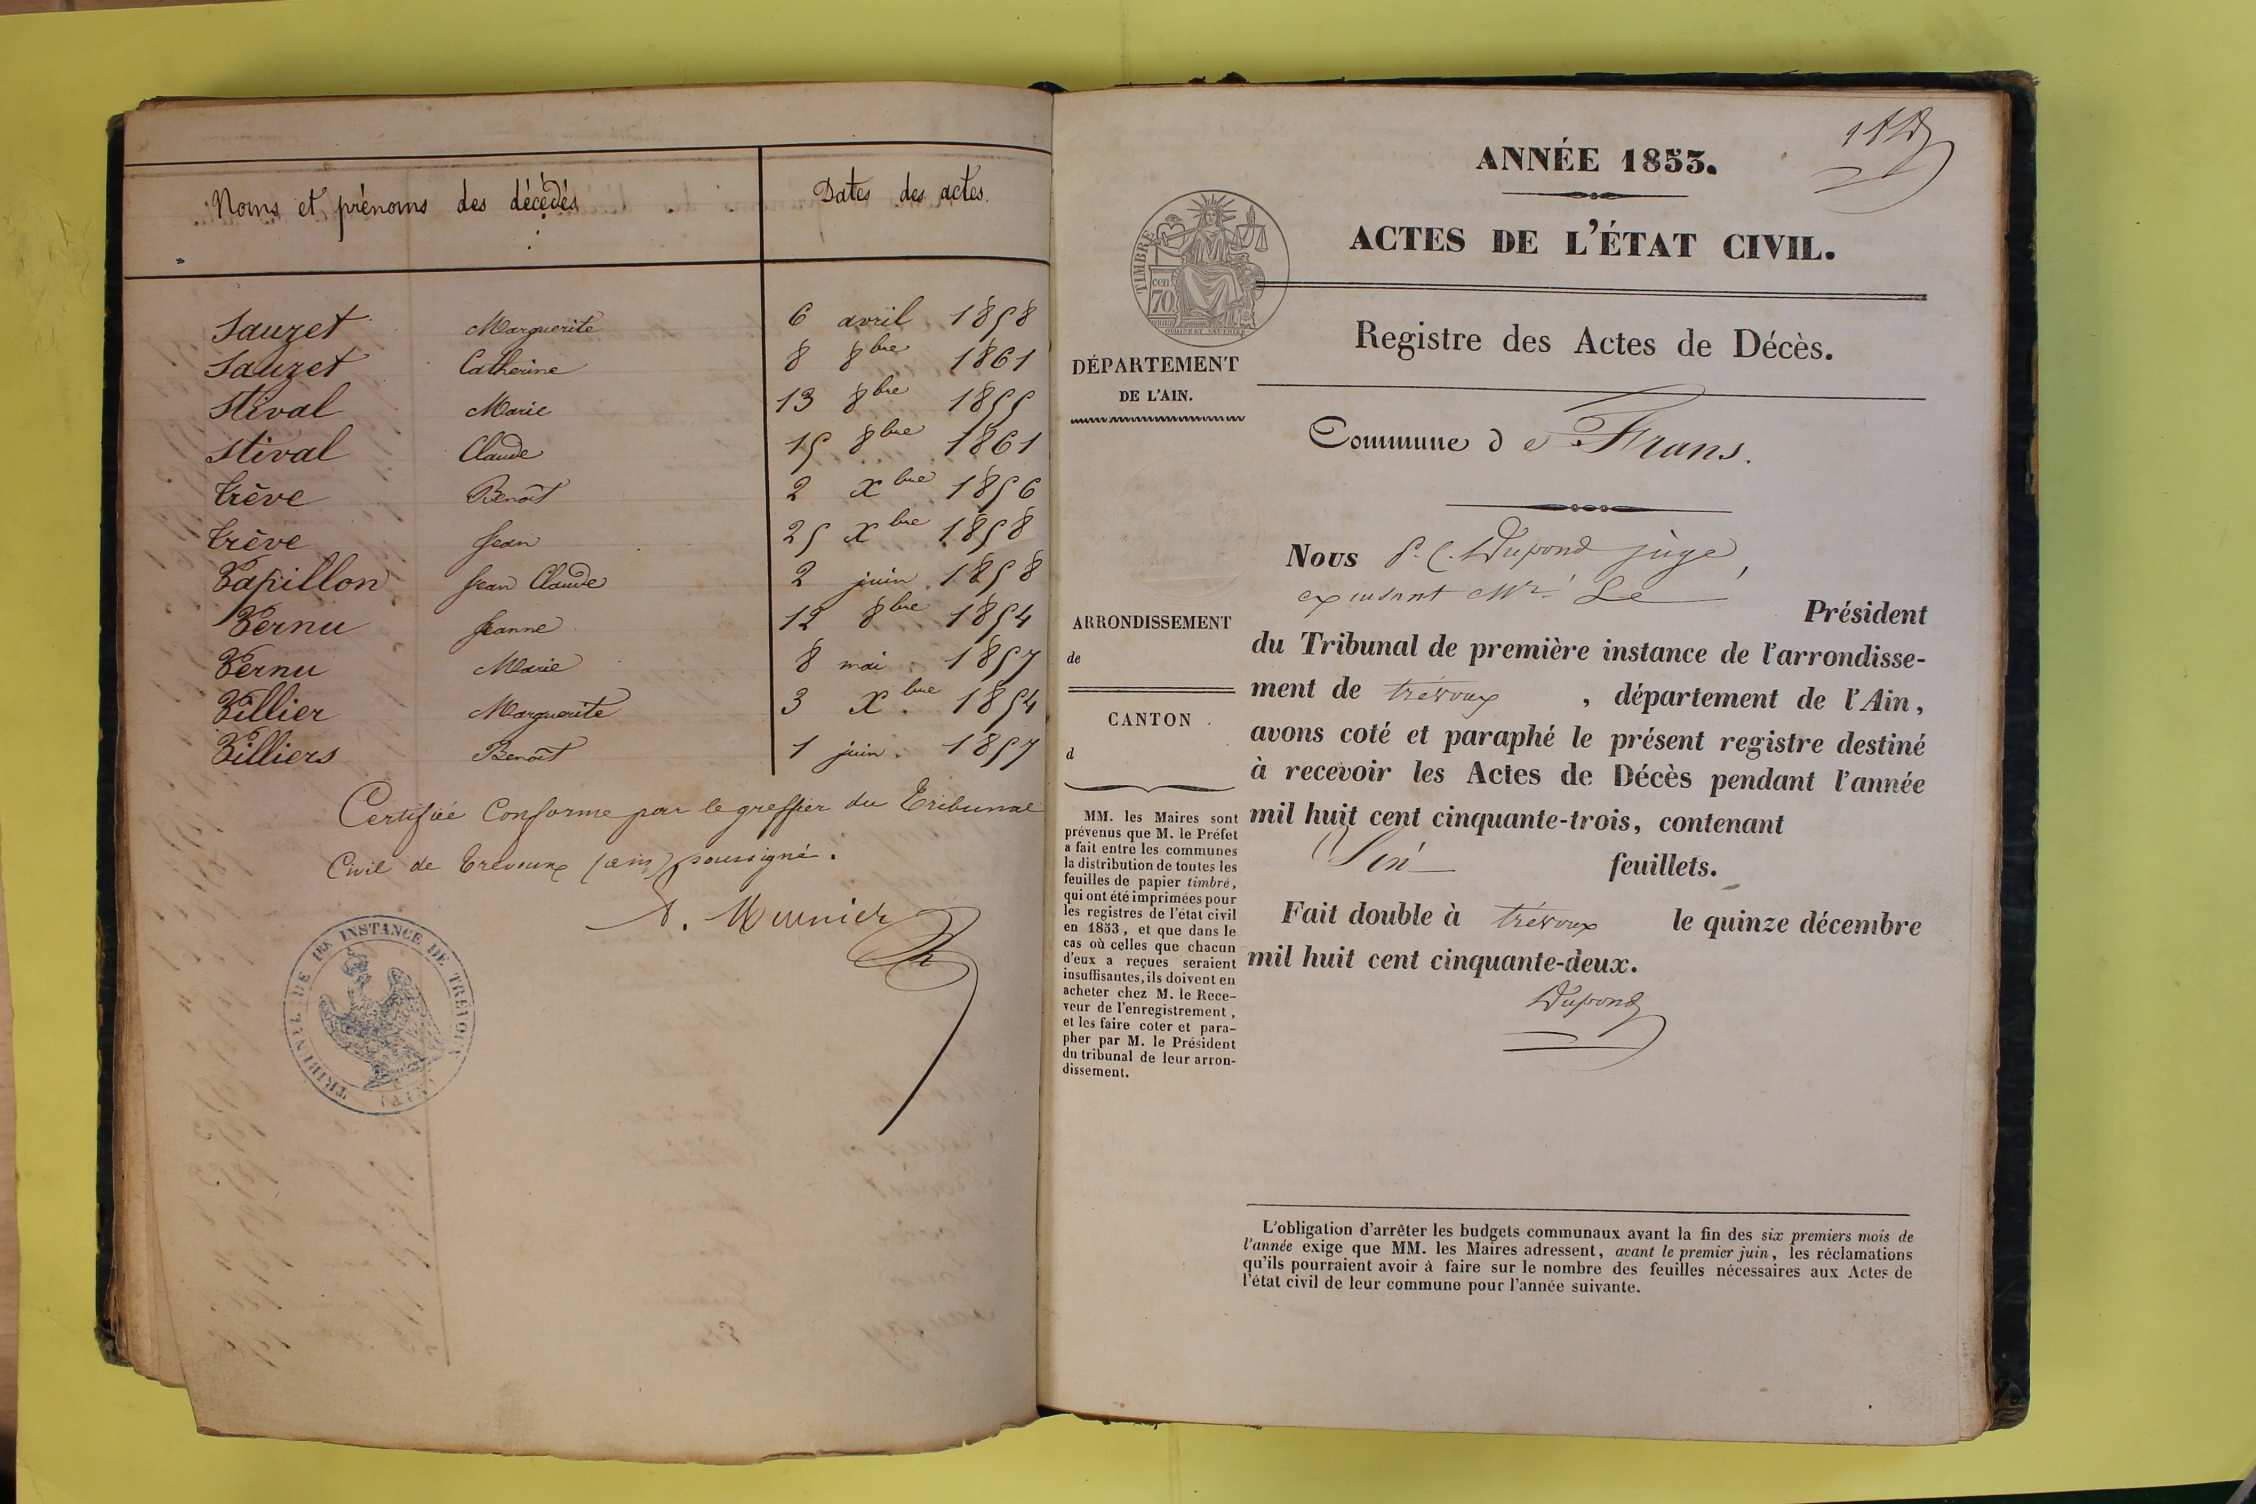 Noms et prénoms des décédés Dates des actes.
Sauzet Marguerite 6 avril 1858
Sauzet Catherine 8 8bre 1861
Stival Marie 13 8bre 1855
Stival Claude 15 8bre 1861
Trève Benoît 2 Xbre 1856
Trève Jean 25 Xbre 1858
Vapillon Jean Claude 2 juin 1858
Vernu Jeanne 12 8bre 1854
Vernu Marie 8 mai 1857
Villier Marguerite 3 Xbre 1854
Villiers Benoît 1 juin 1857
Certifié Conforme par le greffier du Tribunal
Civil de Trévoux (ain) soussigné.
Meunier
TRIBUNAL DE 1RE INSTANCE DE TRÉVOUX (AIN)
ANNÉE 1853.
ACTES DE L'ÉTAT CIVIL.
TIMBRE
cen
70
Registre des Actes de Décès.
DÉPARTEMENT
DE L'AIN.
Commune de Frans.
ARRONDISSEMENT
de
CANTON
d
MM. les Maires sont
prévenus que M. le Préfet
a fait entre les communes
la distribution de toutes les
feuilles de papier timbré,
qui ont été imprimées pour
les registres de l'état civil
en 1853, et que dans le
cas où celles que chacun
d'eux a reçues seraient
insuffisantes, ils doivent en
acheter chez M. le Rece-
veur de l'enregistrement,
et les faire coter et para-
pher par M. le Président
du tribunal de leur arron-
dissement.
Nous P. C. Dupond juge,
Mr. Le Président
du Tribunal de première instance de l'arrondisse-
ment de trévoux, département de l'Ain,
avons coté et paraphé le présent registre destiné
à recevoir les Actes de Décès pendant l'année
mil huit cent cinquante-trois, contenant
feuillets.
Fait double à trévoux le quinze décembre
mil huit cent cinquante-deux.
Dupond
L'obligation d'arrêter les budgets communaux avant la fin des six premiers mois de
l'année exige que MM. les Maires adressent, avant le premier juin, les réclamations
qu'ils pourraient avoir à faire sur le nombre des feuilles nécessaires aux Actes de
l'état civil de leur commune pour l'année suivante.